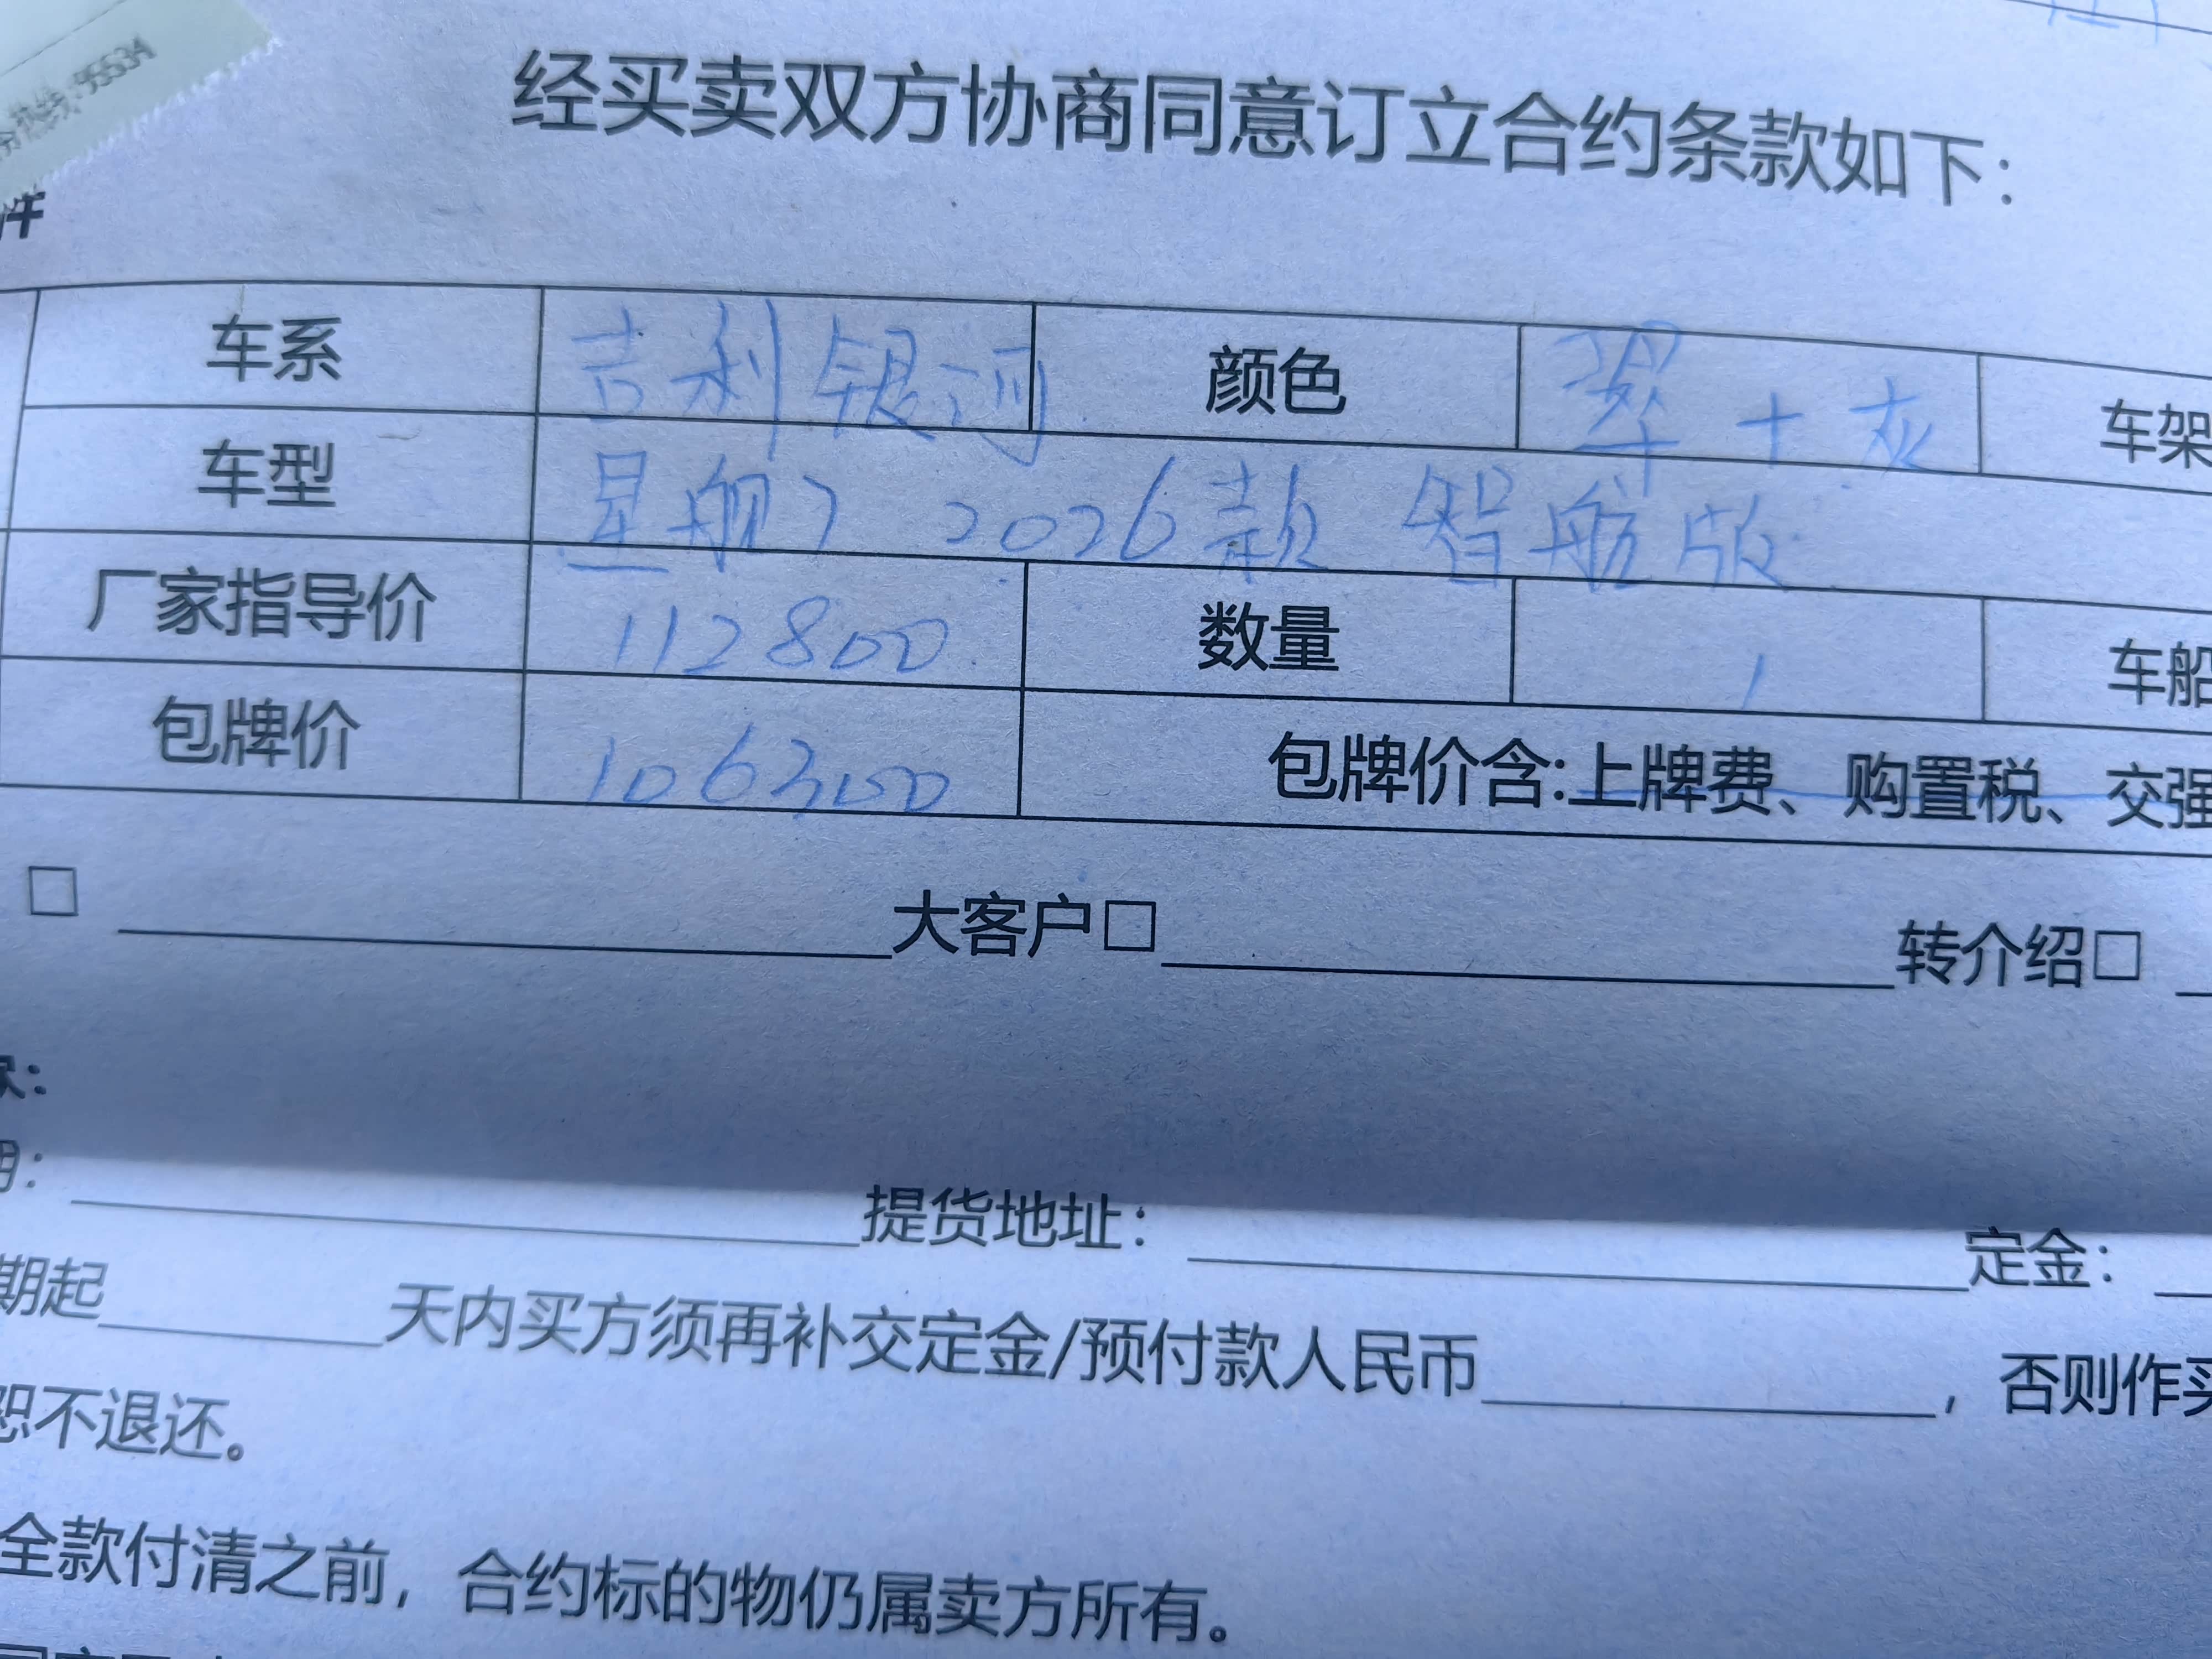 95534
件
经买卖双方协商同意订立合约条款如下：
车系 吉利银河 颜色 翠+灰 车架
车型 星舰7 2026款 智航版
厂家指导价 112800 数量 1 车船
包牌价 106300 包牌价含:上牌费、购置税、交强
□ 大客户□ 转介绍□
提货地址： 定金：
期起 天内买方须再补交定金/预付款人民币 ，否则作买
恕不退还。
全款付清之前，合约标的物仍属卖方所有。